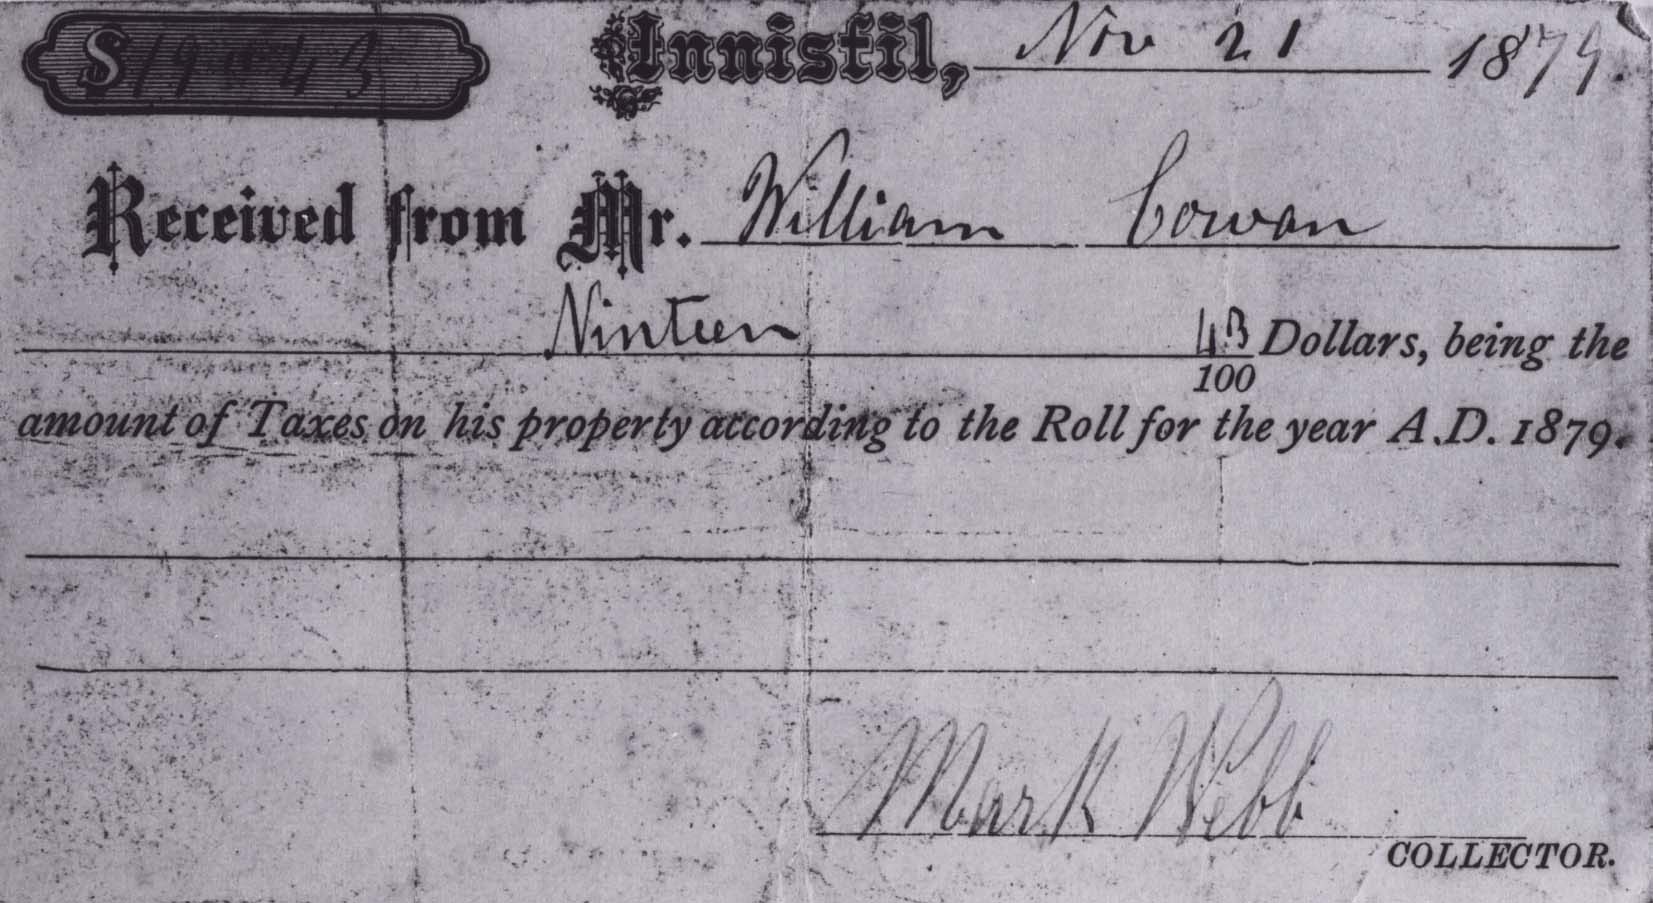 $19.43 Innisfil, Nov 21 1879.
Received from Mr. William Cowan
Ninteen 43/100 Dollars, being the
amount of Taxes on his property according to the Roll for the year A.D. 1879.
Mark Webb
COLLECTOR.